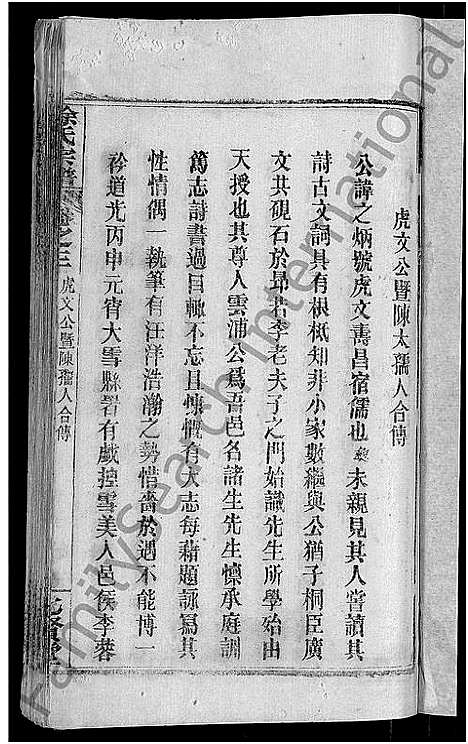 虎文公暨陳太孺人合傳
公諱之炳號虎文壽昌宿儒也 未親見其人嘗讀其
詩古文詞具有根柢知非小家數繼與公猶子桐臣廣
文共硯石於昴若李老夫子之門始識先生所學始由
天授也其尊人雲浦公爲吾邑名諸生先生懍承庭訓
篤志詩書過目輙不忘且慷慨有大志每藉題詠寫其
性情偶一執筆有汪洋浩瀚之勢惜嗇於遇不能博一
衿道光丙申元宵大雪縣署有戲控雪美人邑侯李蓉
徐氏宗譜 卷之三 虎文公暨陳孺人合傳
FamilySearch International